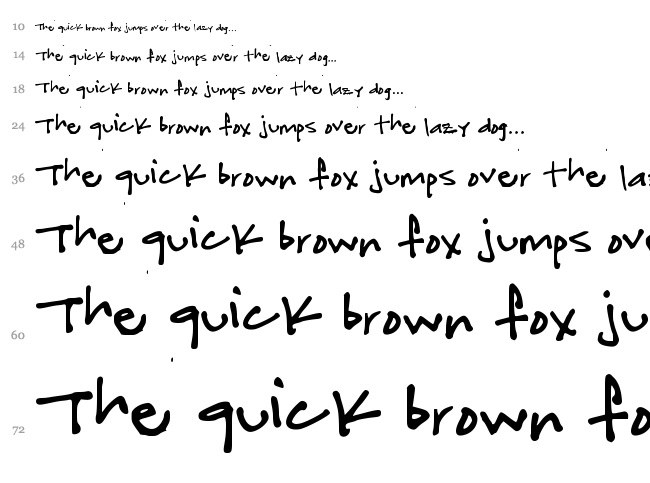 10 The quick brown fox jumps over the lazy dog...
14 The quick brown fox jumps over the lazy dog...
18 The quick brown fox jumps over the lazy dog...
24 The quick brown fox jumps over the lazy dog...
36 The quick brown fox jumps over the la
48 The quick brown fox jumps ov
60 The quick brown fox ju
72 The quick brown fo